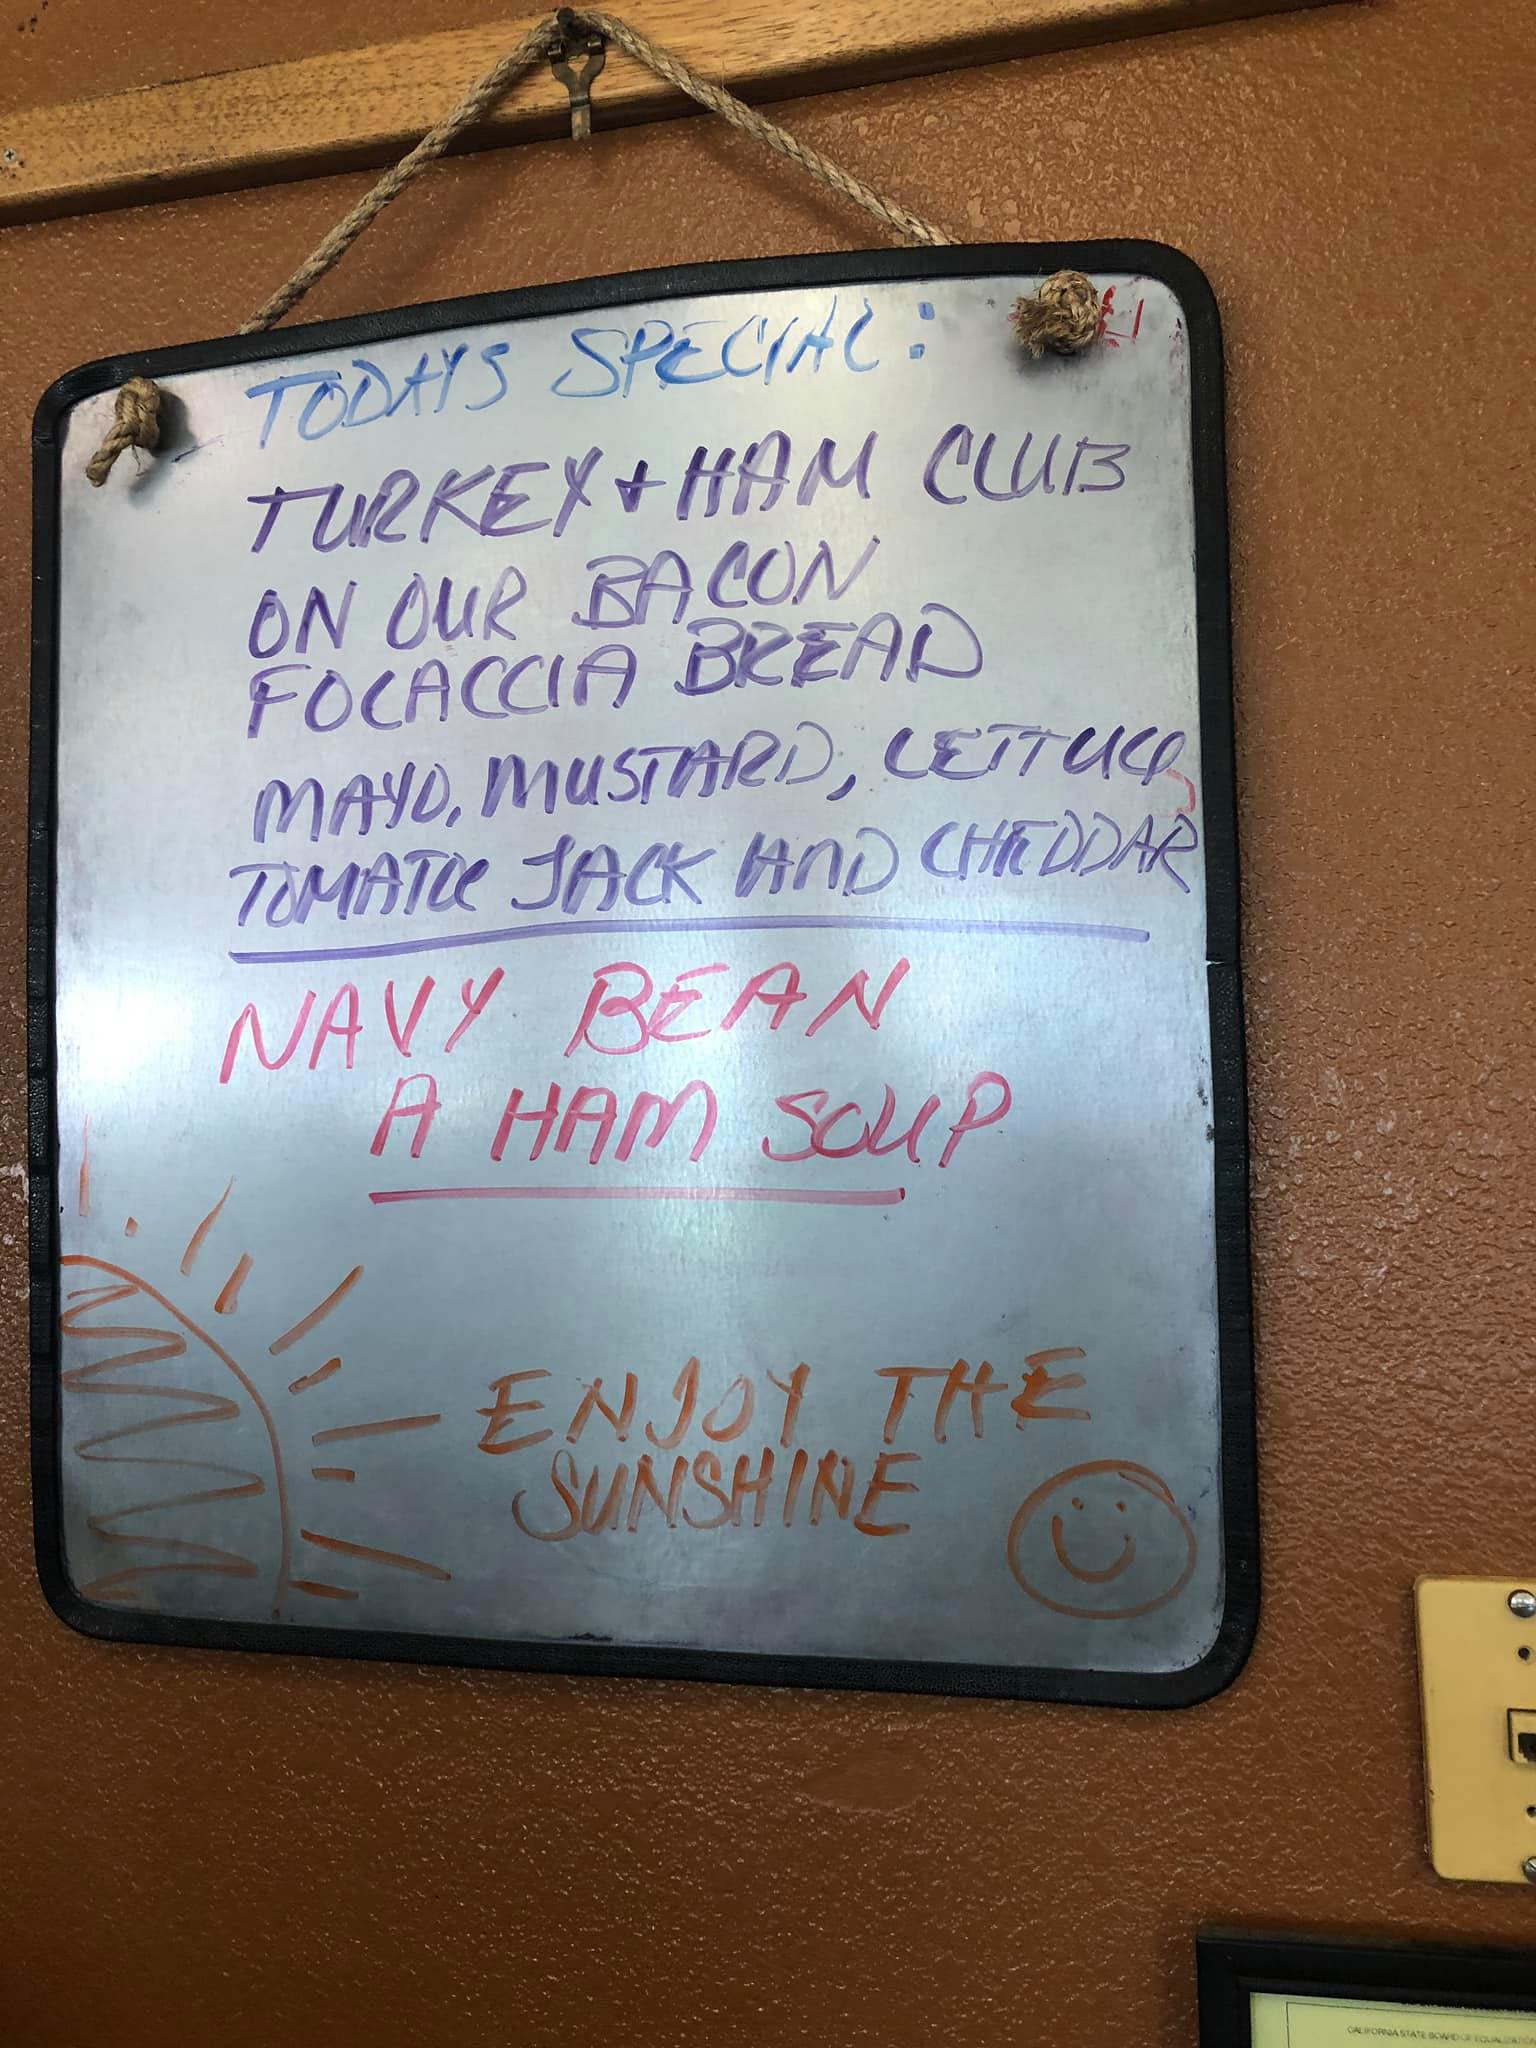 TODAYS SPECIAL:
TURKEY + HAM CLUB
ON OUR BACON
FOCACCIA BREAD
MAYO, MUSTARD, LETTUCE
TOMATOE JACK AND CHEDDAR
NAVY BEAN
A HAM SOUP
ENJOY THE
SUNSHINE
CALIFORNIA STATE BOARD OF EQUALIZATION